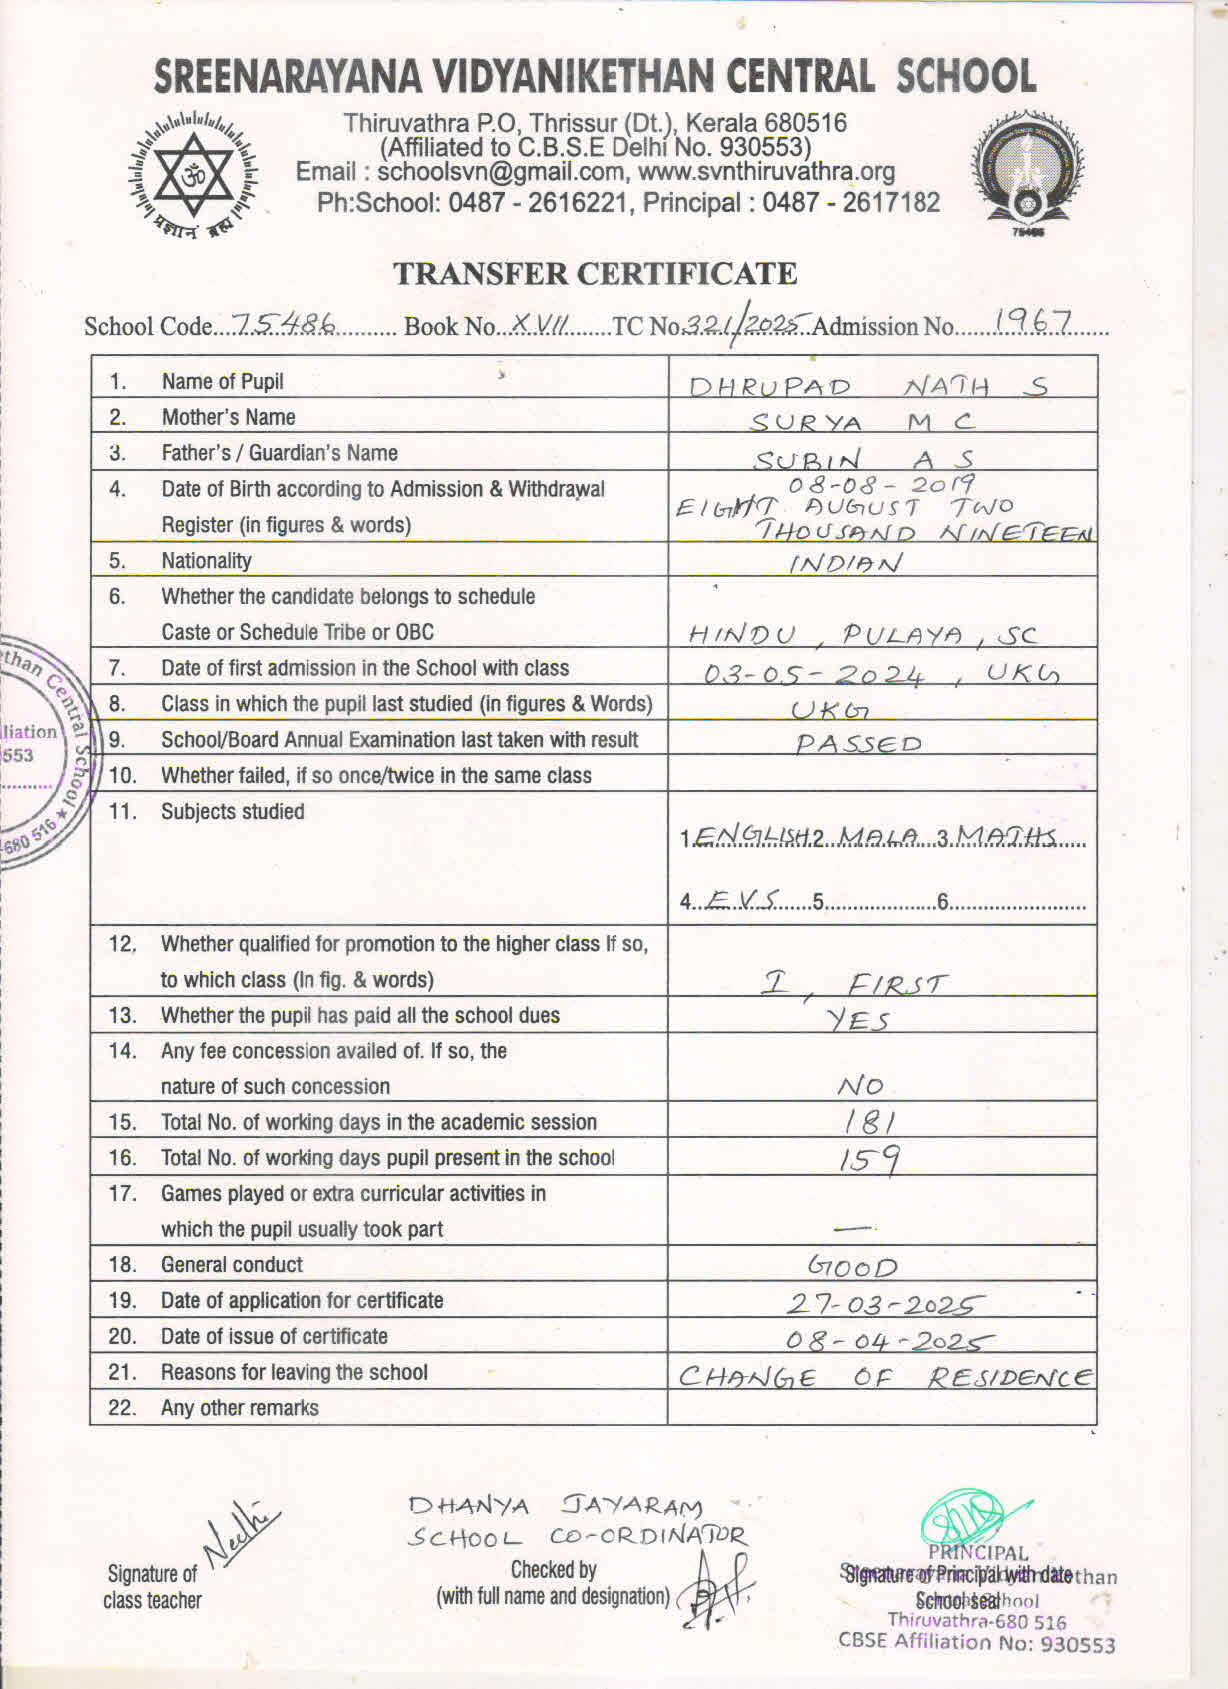 SREENARAYANA VIDYANIKETHAN CENTRAL SCHOOL
Thiruvathra P.O, Thrissur (Dt.), Kerala 680516
(Affiliated to C.B.S.E Delhi No. 930553)
Email : schoolsvn@gmail.com, www.svnthiruvathra.org
Ph:School: 0487 - 2616221, Principal : 0487 - 2617182
ॐ
प्रज्ञानं ब्रह्म
75486
TRANSFER CERTIFICATE
School Code....75486.......... Book No...XVII.......TC No.321/2025..Admission No......1967......
1. Name of Pupil DHRUPAD NATH S
2. Mother's Name SURYA M C
3. Father's / Guardian's Name SUBIN A S
4. Date of Birth according to Admission & Withdrawal 08-08-2019
Register (in figures & words) EIGHT AUGUST TWO
THOUSAND NINETEEN
5. Nationality INDIAN
6. Whether the candidate belongs to schedule
Caste or Schedule Tribe or OBC HINDU, PULAYA, SC
7. Date of first admission in the School with class 03-05-2024, UKG
8. Class in which the pupil last studied (in figures & Words) UKG
9. School/Board Annual Examination last taken with result PASSED
10. Whether failed, if so once/twice in the same class
11. Subjects studied
1.ENGLISH.2..MALA...3.MATHS.....
4..EVS......5...................6.......................
12. Whether qualified for promotion to the higher class If so,
to which class (In fig. & words) I, FIRST
13. Whether the pupil has paid all the school dues YES
14. Any fee concession availed of. If so, the
nature of such concession NO
15. Total No. of working days in the academic session 181
16. Total No. of working days pupil present in the school 159
17. Games played or extra curricular activities in
which the pupil usually took part —
18. General conduct GOOD
19. Date of application for certificate 27-03-2025
20. Date of issue of certificate 08-04-2025
21. Reasons for leaving the school CHANGE OF RESIDENCE
22. Any other remarks
ethan Central School ★
liation
553
-680 516
DHANYA JAYARAM
SCHOOL CO-ORDINATOR
Signature of
class teacher
Checked by
(with full name and designation)
PRINCIPAL
Signature of Principal with date
School seal
Thiruvathra-680 516
CBSE Affiliation No: 930553